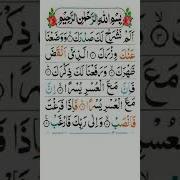 بِسْمِ اللهِ الرَّحْمٰنِ الرَّحِيْمِ
اَلَمْ نَشْرَحْ لَكَ صَدْرَكَ ۙ وَوَضَعْنَا
عَنْكَ وِزْرَكَ ۙ الَّذِيْۤ اَنْقَضَ
ظَهْرَكَ ۙ وَرَفَعْنَا لَكَ ذِكْرَكَ ؕ
فَاِنَّ مَعَ الْعُسْرِ يُسْرًا ۙ اِنَّ
مَعَ الْعُسْرِ يُسْرًا ؕ فَاِذَا فَرَغْتَ
فَانْصَبْ ۙ وَاِلٰى رَبِّكَ فَارْغَبْ